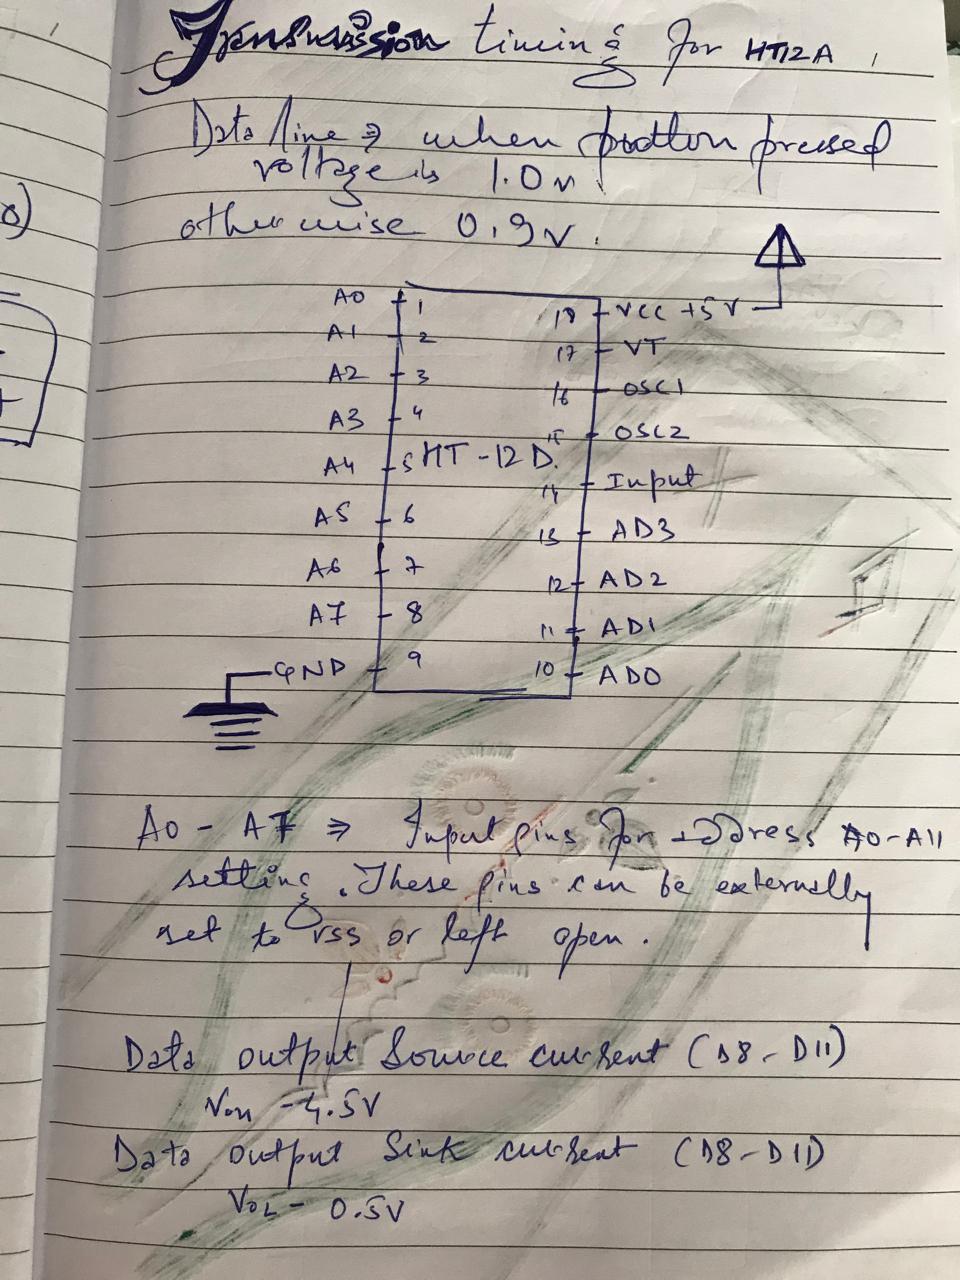 Transmission timing for HT12A
Data line ⇒ when button pressed
voltage is 1.0v
otherwise 0.9v.
A0 1
A1 2
A2 3
A3 4
A4 5
A5 6
A6 7
A7 8
GND 9
HT-12D.
18 VCC +5V
17 VT
16 OSC1
15 OSC2
14 Input
13 AD3
12 AD2
11 AD1
10 AD0
A0 - A7 ⇒ Input pins for address A0-A11
setting. These pins can be externally
set to vss or left open.
Data output Source current (D8-D11)
-4.5V
Data output Sink current (D8-D11)
VOL - 0.5V